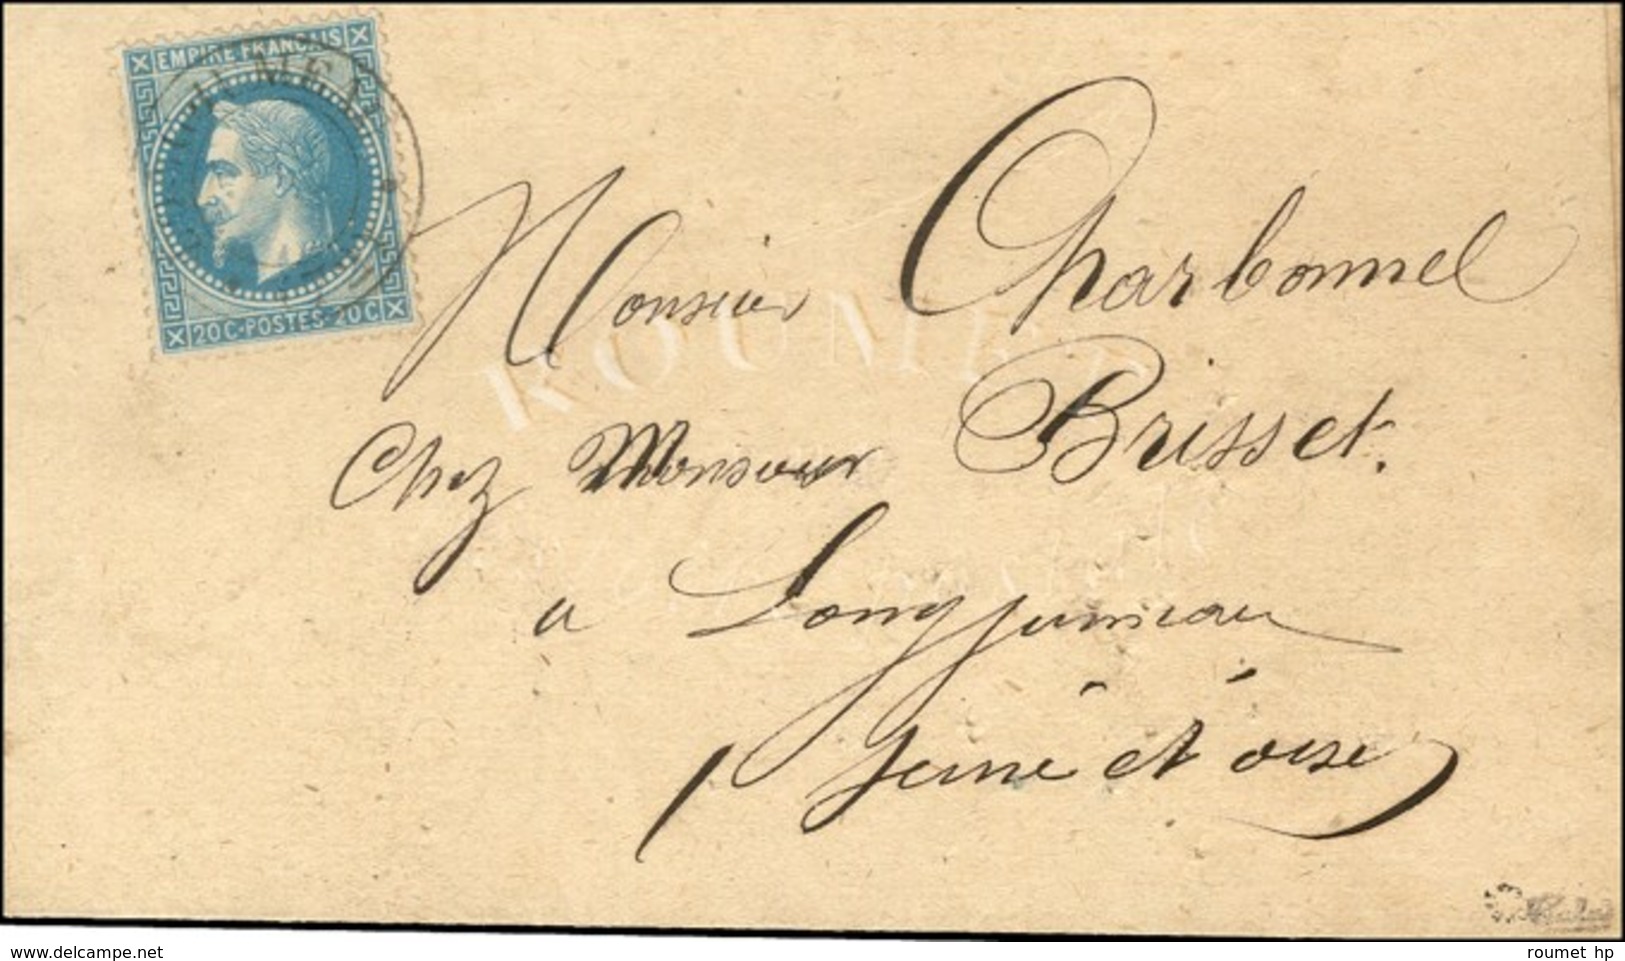 EMPIRE FRANCAIS
20C·POSTES·20C
Monsieur Charbonnel
ROUMET
Chez Monsieur Brisset.
a Longjumeau
Seine et oise
www.delcampe.net
roumet hp